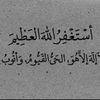 أَسْتَغْفِرُ اللهَ الْعَظِيْمَ
إِلَّا هُوَ الْحَيُّ الْقَيُّومُ وَأَتُوبُ